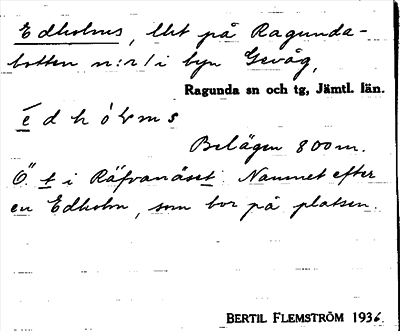 Edholms, lht på Ragunda-
botten n:r 1 i byn Gevåg,
Ragunda sn och tg, Jämtl. län.
Belägen 800 m.
Ö. t i Räfvanäset. Namnet efter
en Edholm, som bor på platsen.
BERTIL FLEMSTRÖM 1936.